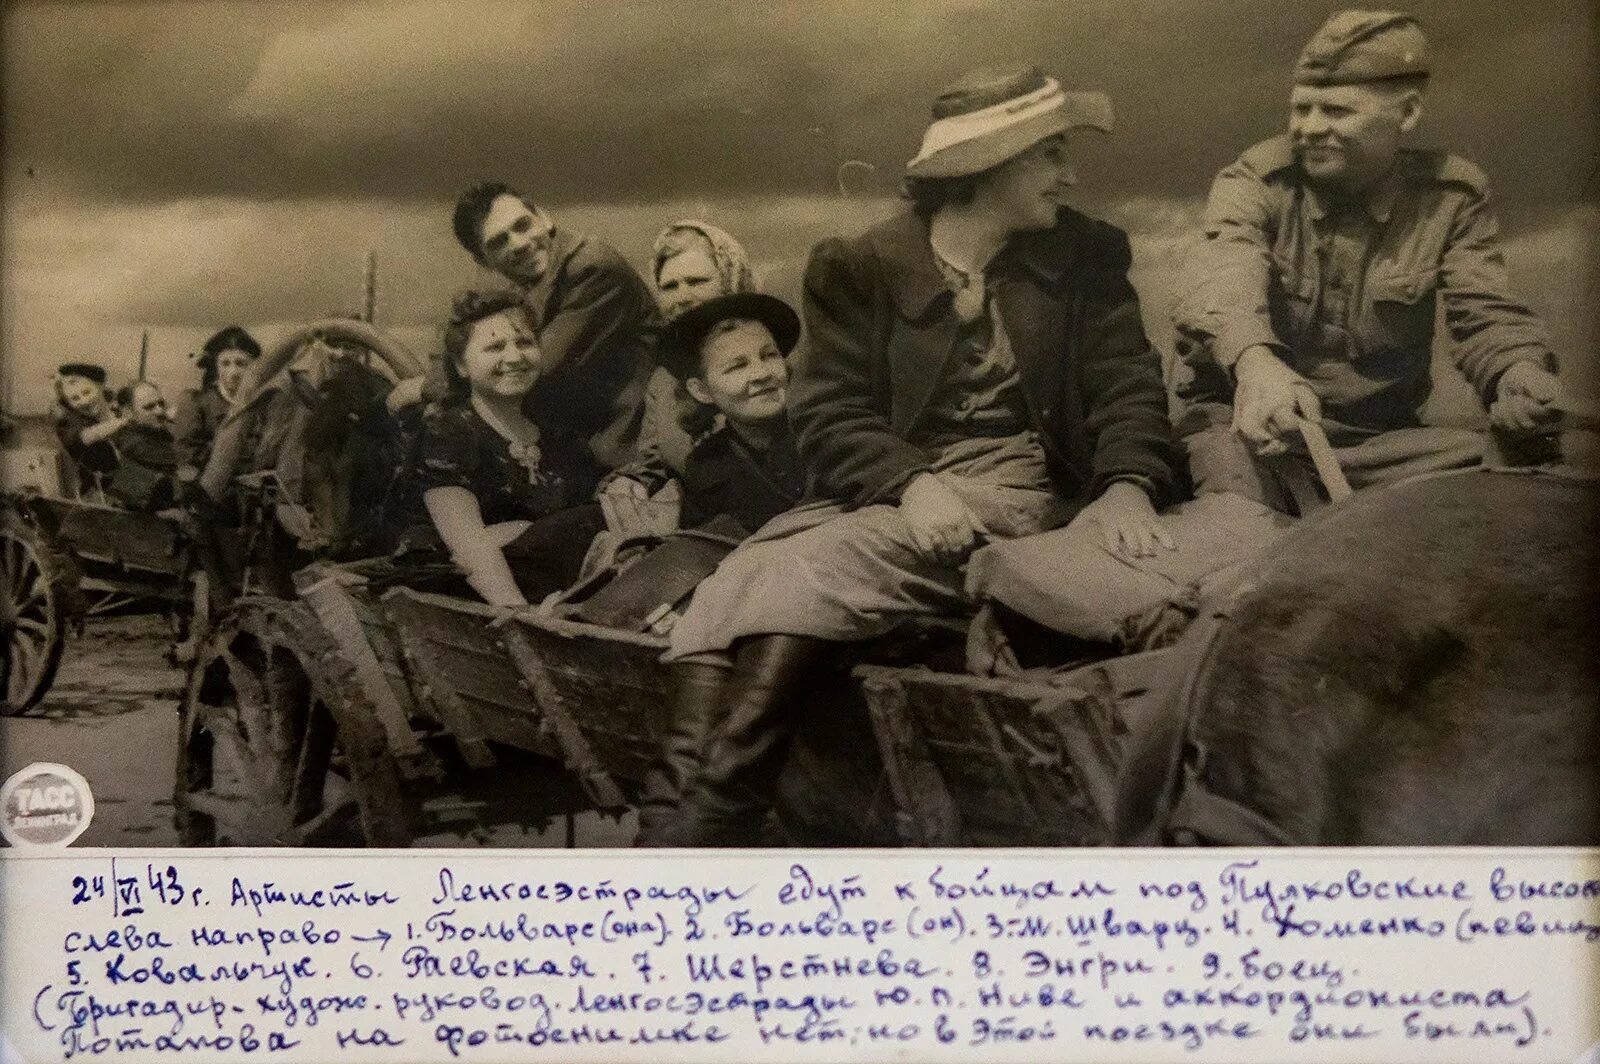 ТАСС
ЛЕНИНГРАД
24/VI 43 г. Артисты Ленгосэстрады едут к бойцам под Пулковские высо
слева направо → 1. Больварс (она). 2. Больварс (он). 3.-М. Шварц. 4. Хоменко (певи
5. Ковальчук. 6. Раевская. 7. Шерстнева. 8. Энгри. 9. боец.
(Бригадир - худож. руковод. Ленгосэстрады Ю. П. Ниве и аккордиониста
Потапова на фотоснимке нет; но в этой поездке они были).